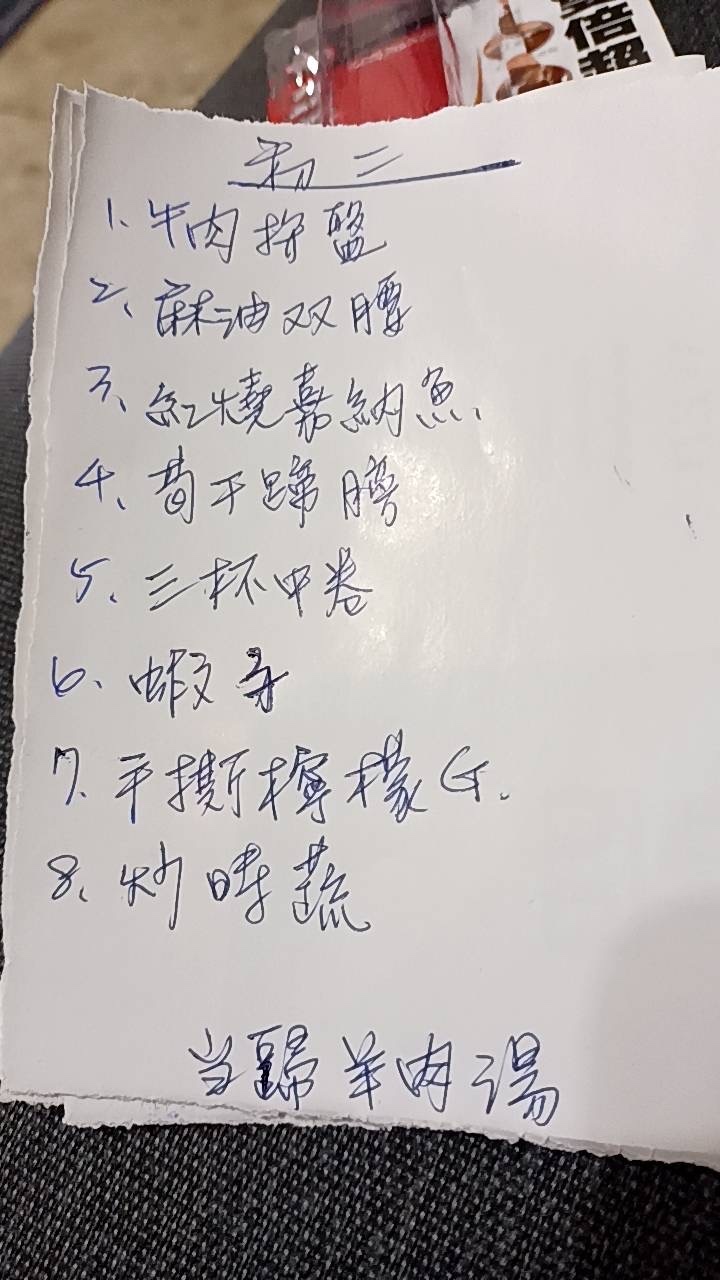 倍
初二
1、牛肉拼盤
2、麻油双腰
3、紅燒嘉納魚、
4、筍干蹄膀
5、三杯中卷
6、蝦
7、手撕檸檬G.
8、炒時蔬
当歸羊肉湯